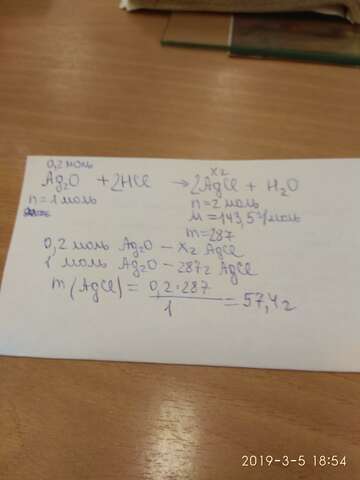 0,2 моль x г
Ag₂O + 2HCl → 2AgCl + H₂O
n = 1 моль n = 2 моль
M = 143,5 г/моль
m = 287
0,2 моль Ag₂O – x г AgCl
1 моль Ag₂O – 287 г AgCl
m (AgCl) = 0,2·287 / 1 = 57,4 г
2019-3-5 18:54